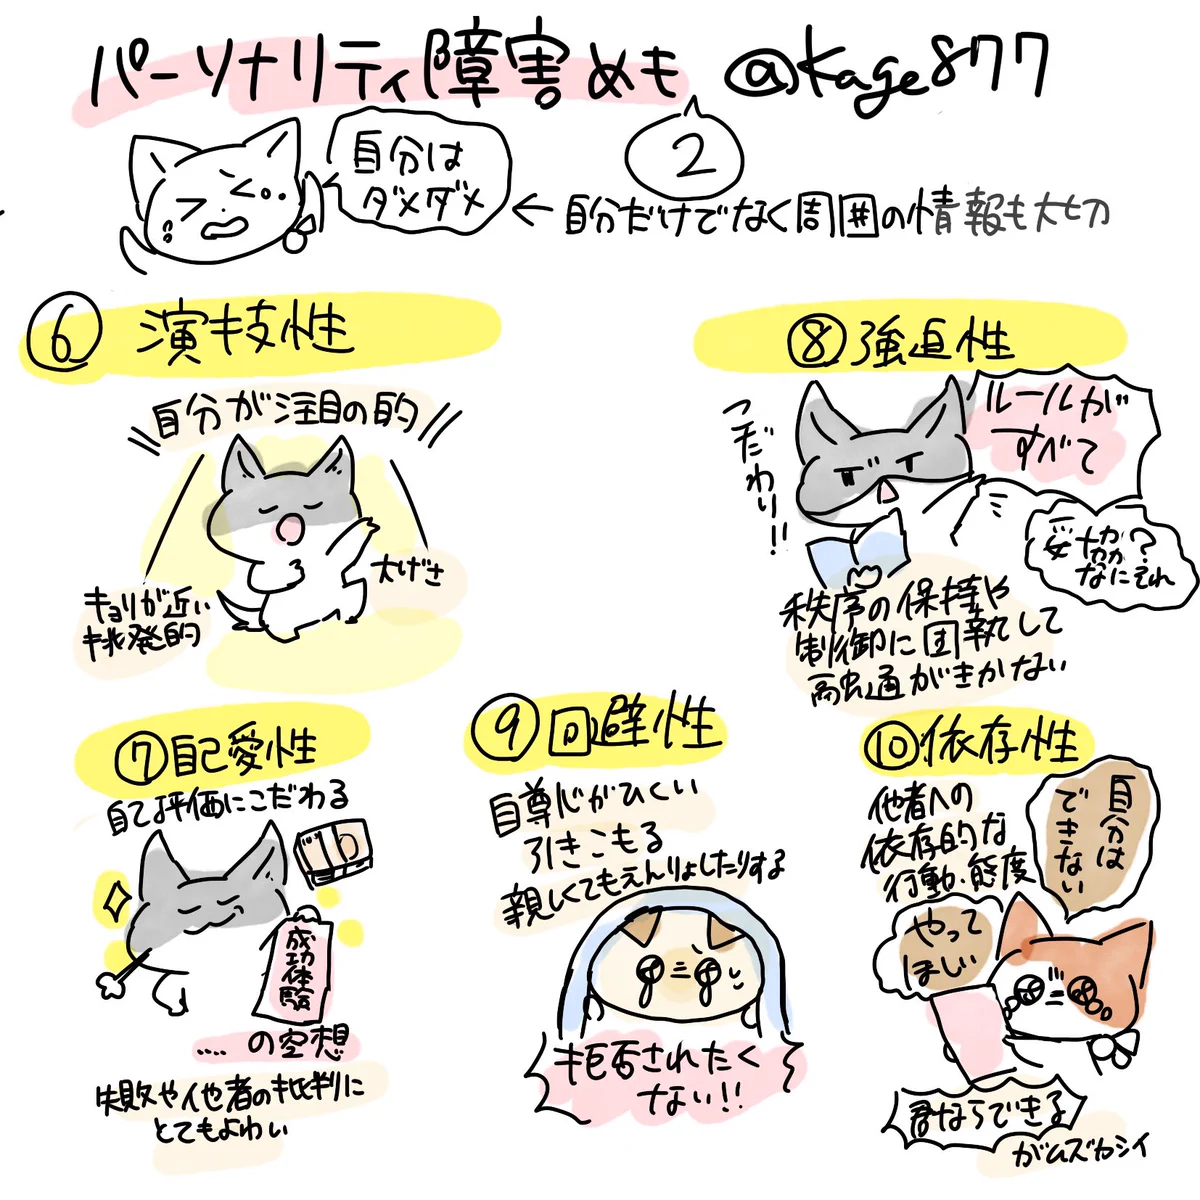 パーソナリティ障害めも @kage877
2
自分は
ダメダメ
← 自分だけでなく周囲の情報も大切
⑥ 演技性
\\自分が注目の的//
大げさ
キョリが近い
挑発的
⑧強迫性
ルールが
すべて
こだわり!!
妥協?
なにそれ
秩序の保持や
制御に固執して
融通がきかない
⑦自己愛性
自己評価にこだわる
成功体験
....の空想
失敗や他者の批判に
とてもよわい
⑨回避性
自尊心がひくい
引きこもる
親しくてもえんりょしたりする
拒否されたく
ない!!
⑩依存性
他者への
依存的な
行動・態度
自分は
できない
やって
ほしい
君ならできる
がムズカシイ